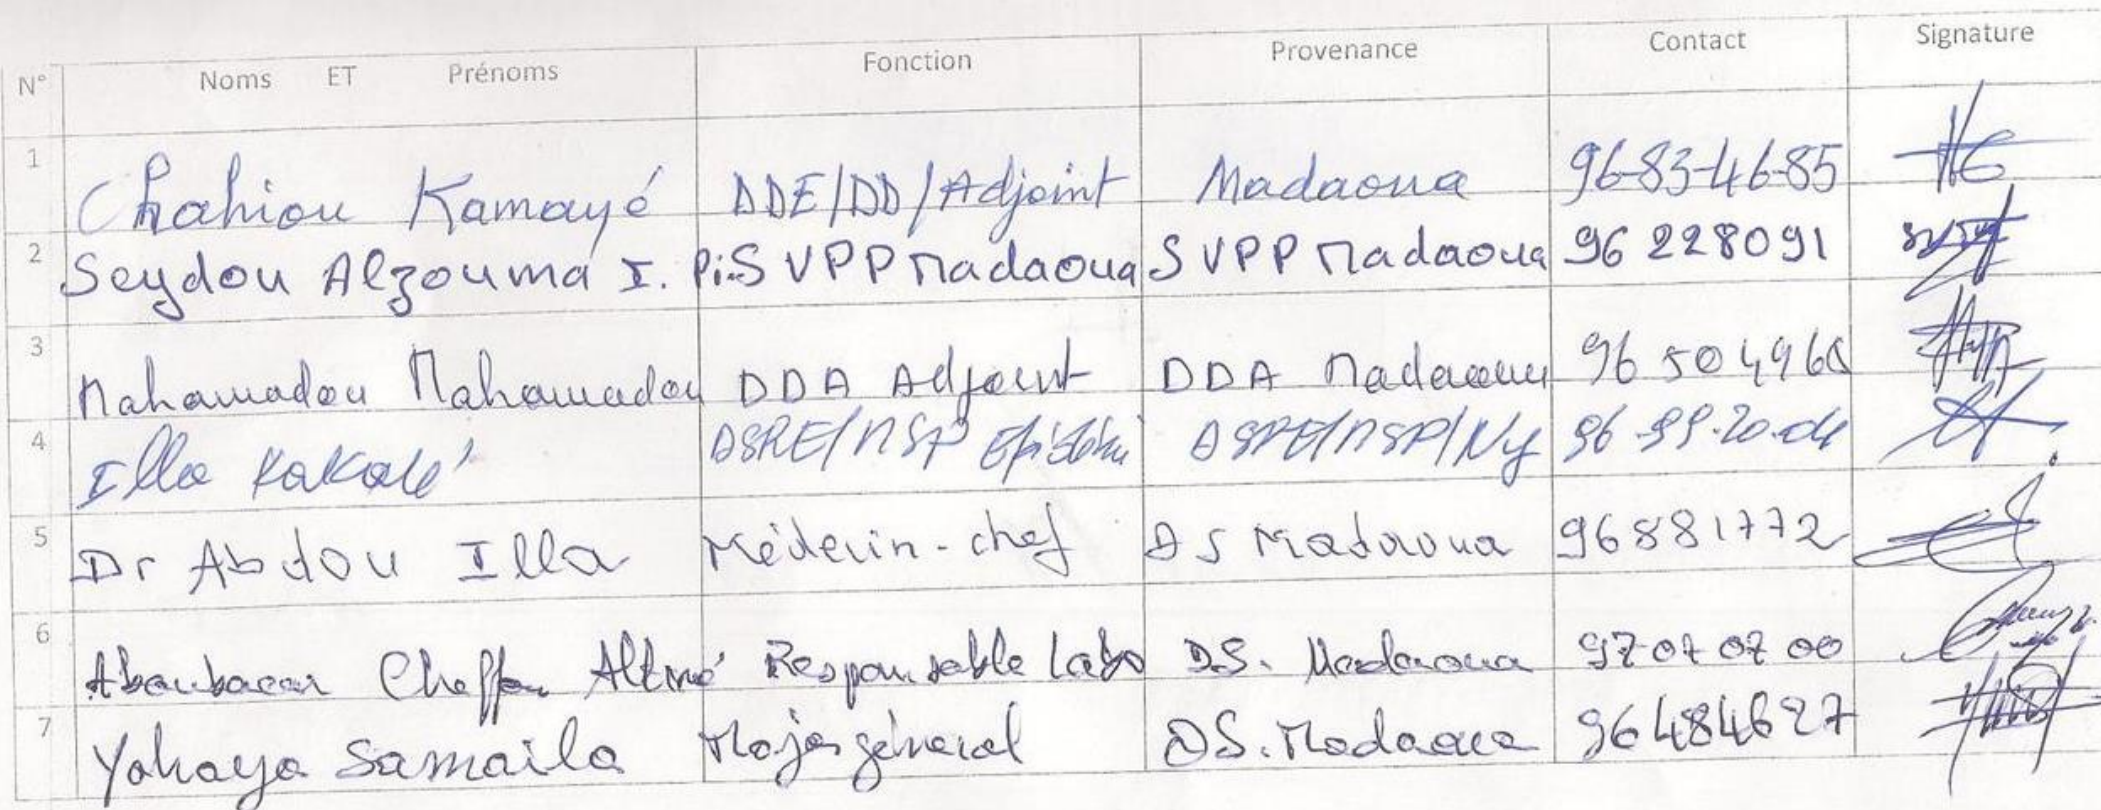 N° Noms ET Prénoms Fonction Provenance Contact Signature
1 Chahiou Kamayé DDE/DD/Adjoint Madaoua 96-83-46-85
2 Seydou Alzouma I. P.i.S VPP Madaoua SVPP Madaoua 96 228091
3 Mahamadou Mahamadou DDA Adjoint DDA Madaoua 96 504960
4 Illa Kakalé DSRE/MSP DSRE/MSP/Ny
5 Dr Abdou Illa Médecin-chef DS Madaoua 96881772
6 Aboubacar Cheffou Altiné Responsable Labo D.S. Madaoua 97 07 07 00
7 Yahaya Samaila Major général DS. Madaoua 96484627